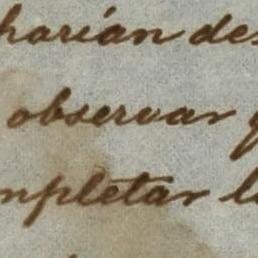 harían des
observar q
mpletar l